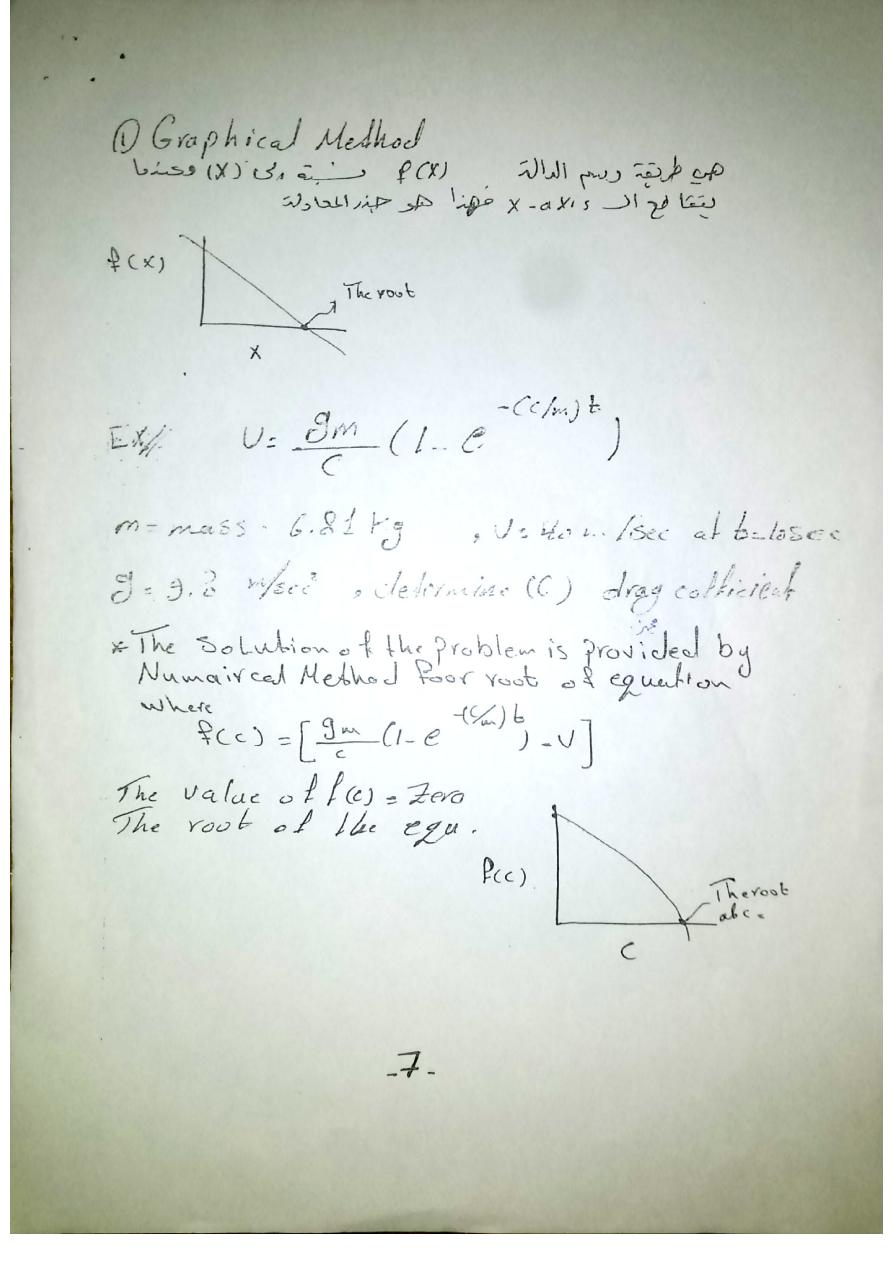 ① Graphical Method
هي طريقة رسم الدالة f(x) نسبة الى (x) وعندما
يتقاطع الـ x-axis فهذا هو جذر المعادلة
f(x)
The root
x
Ex// U = gm/c (1 - e^-(c/m)t)
m = mass = 6.81 kg , U = 40 m/sec at t=10sec
g = 9.8 m/sec² , determine (C) drag cofficient
* The Solution of the problem is provided by
Numaircal Method foor root of equation
where
f(c) = [gm/c (1 - e^-(c/m)t) - U]
The value of f(c) = Zero
The root of the equ.
f(c)
The root
at c =
C
-7-